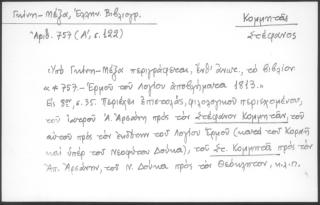 Γκίνη-Μέξα, Ἑλλην. Βιβλιογρ.
Κομμητᾶς
Ἀριθ. 757 (Α', σ. 122)
Στέφανος
«Ὑπὸ Γκίνη-Μέξα περιγράφεται, ἔνθ' ἀνωτ., τὸ βιβλίον
«*757.- Ἑρμοῦ τοῦ Λογίου ἀποβλήματα 1813.»
Εἰς 8ον, σ. 35. Περιέχει ἐπιστολάς, φιλολογικοῦ περιεχομένου,
τοῦ ἰατροῦ Ἀ. Ἀρσάκη πρὸς τὸν Στέφανον Κομμητᾶν, τοῦ
αὐτοῦ πρὸς τὸν ἐκδότην τοῦ Λογίου Ἑρμοῦ (κατὰ τοῦ Κοραῆ
καὶ ὑπὲρ τοῦ Νεοφύτου Δούκα), τοῦ Στ. Κομμητᾶ πρὸς τὸν
Ἀπ. Ἀρσάκην, τοῦ Ν. Δούκα πρὸς τὸν Θεόκλητον, κ.λ.π.